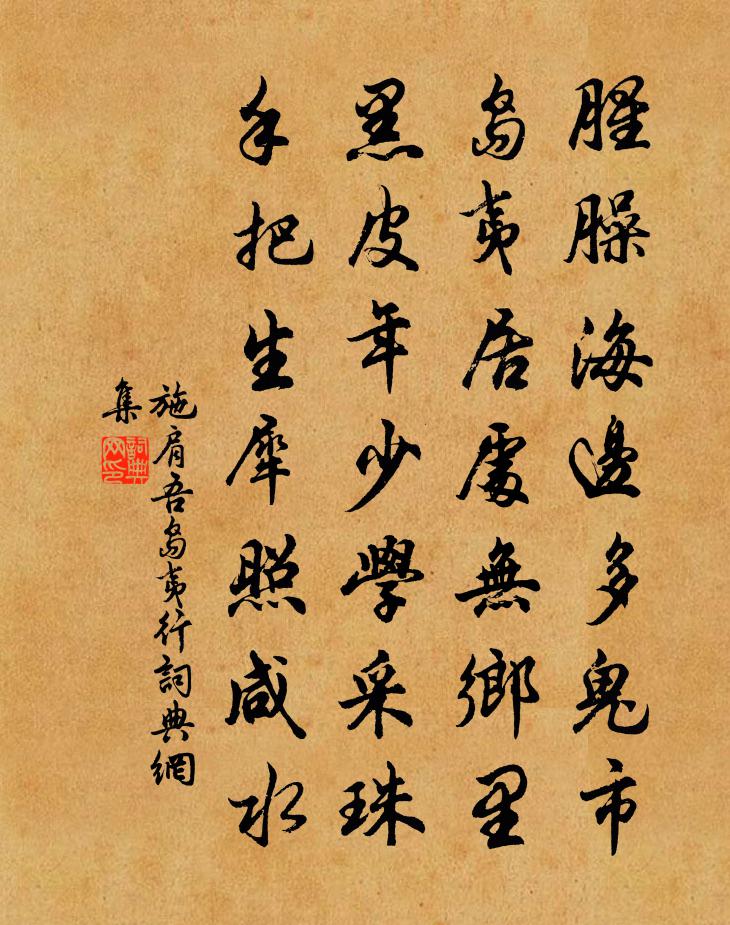 腥臊海邊多鬼市
島夷居處無鄉里
黑皮年少學采珠
手把生犀照咸水
施肩吾島夷行詞典網
集
詞典網印